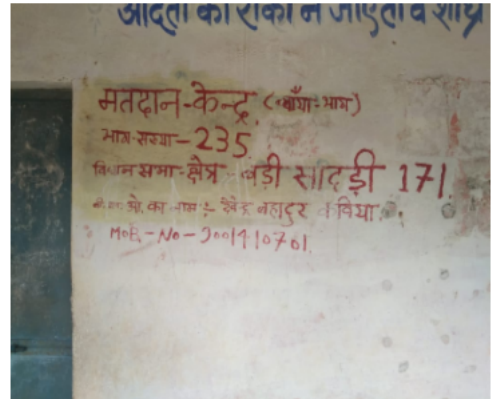 आदतों को रोका न जाए तो वे शीघ्र
मतदान-केन्द्र (बाँया-भाग)
भाग-संख्या-235
विधान सभा-क्षेत्र-बड़ी सादड़ी 171
बी.एल.ओ. का नाम:- देवेन्द्र बहादुर कविया
MOB-No-9001910701